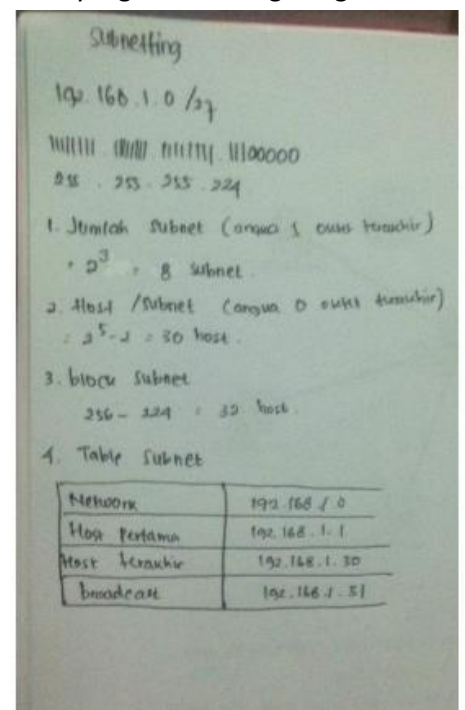 Subnetting
192.168.1.0 /27
11111111 . 11111111 . 11111111 . 11100000
255 . 255 . 255 . 224
1. Jumlah Subnet (angka 1 oktet terakhir)
= 2³ = 8 subnet.
2. Host /Subnet (angka 0 oktet terakhir)
= 2⁵-2 = 30 host.
3. block Subnet
256 - 224 = 32 host.
4. Table Subnet
Network 192.168.1.0
Host Pertama 192.168.1.1
Host terakhir 192.168.1.30
broadcast 192.168.1.31